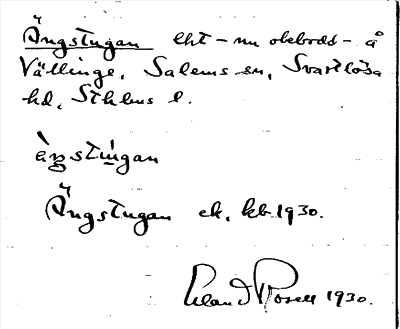 Ängstugan lht - nu obebodd - å
Vällinge, Salems sn, Svartlösa
hd, Sthlms l.
àŋstùgan
Ängstugan ek. kb. 1930.
Erland Rosell 1930.